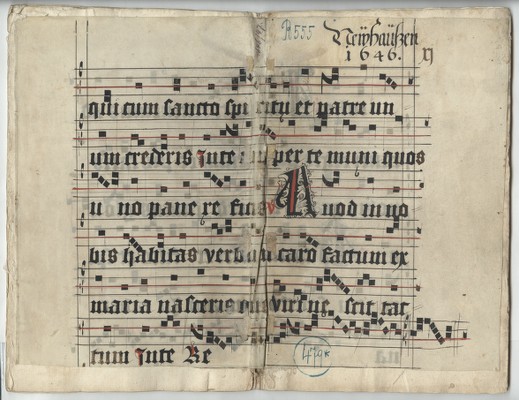 R 555
Neÿhaüßen
1646.
qui cum sancto spiritu et patre un
um crederis Inte per te muni quos
u no pane re ficis
V A uod in no
bis habitas verbum caro factum ex
maria nasceris virgine scit tac
tum Inte Re
479*